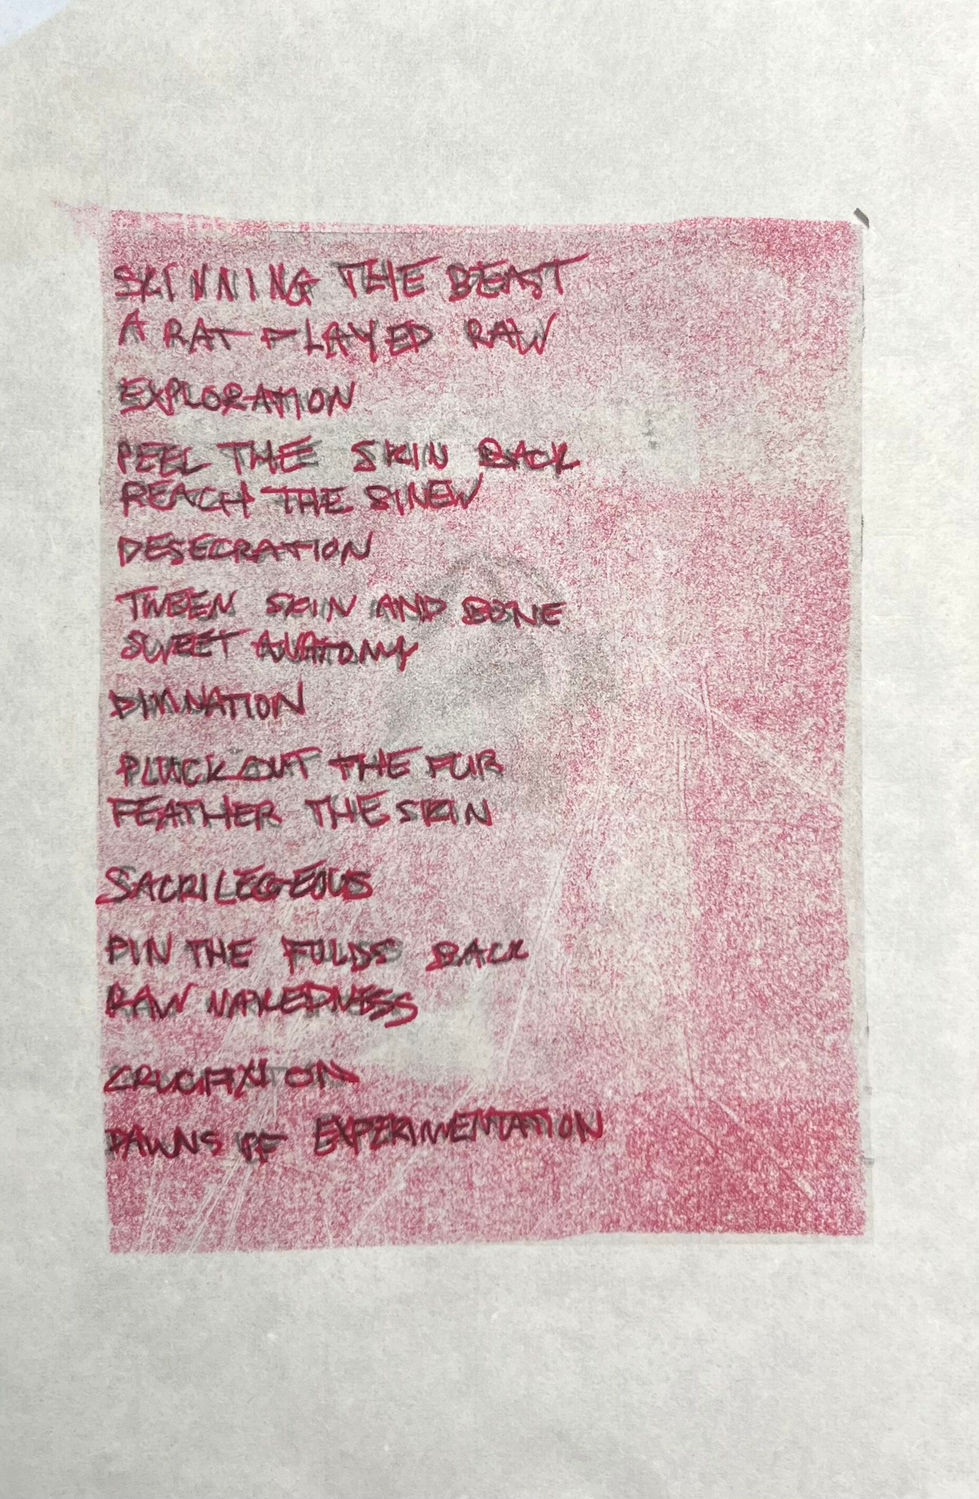 SKINNING THE BEAST
A RAT FLAYED RAW
EXPLORATION
PEEL THE SKIN BACK
REACH THE SINEW
DESECRATION
TWEEN SKIN AND BONE
SWEET ANATOMY
PLUCK OUT THE FUR
FEATHER THE SKIN
SACRILEGEOUS
PIN THE FOLDS BACK
RAW NAKEDNESS
CRUCIFIXION
DAWNS OF EXPERIMENTATION